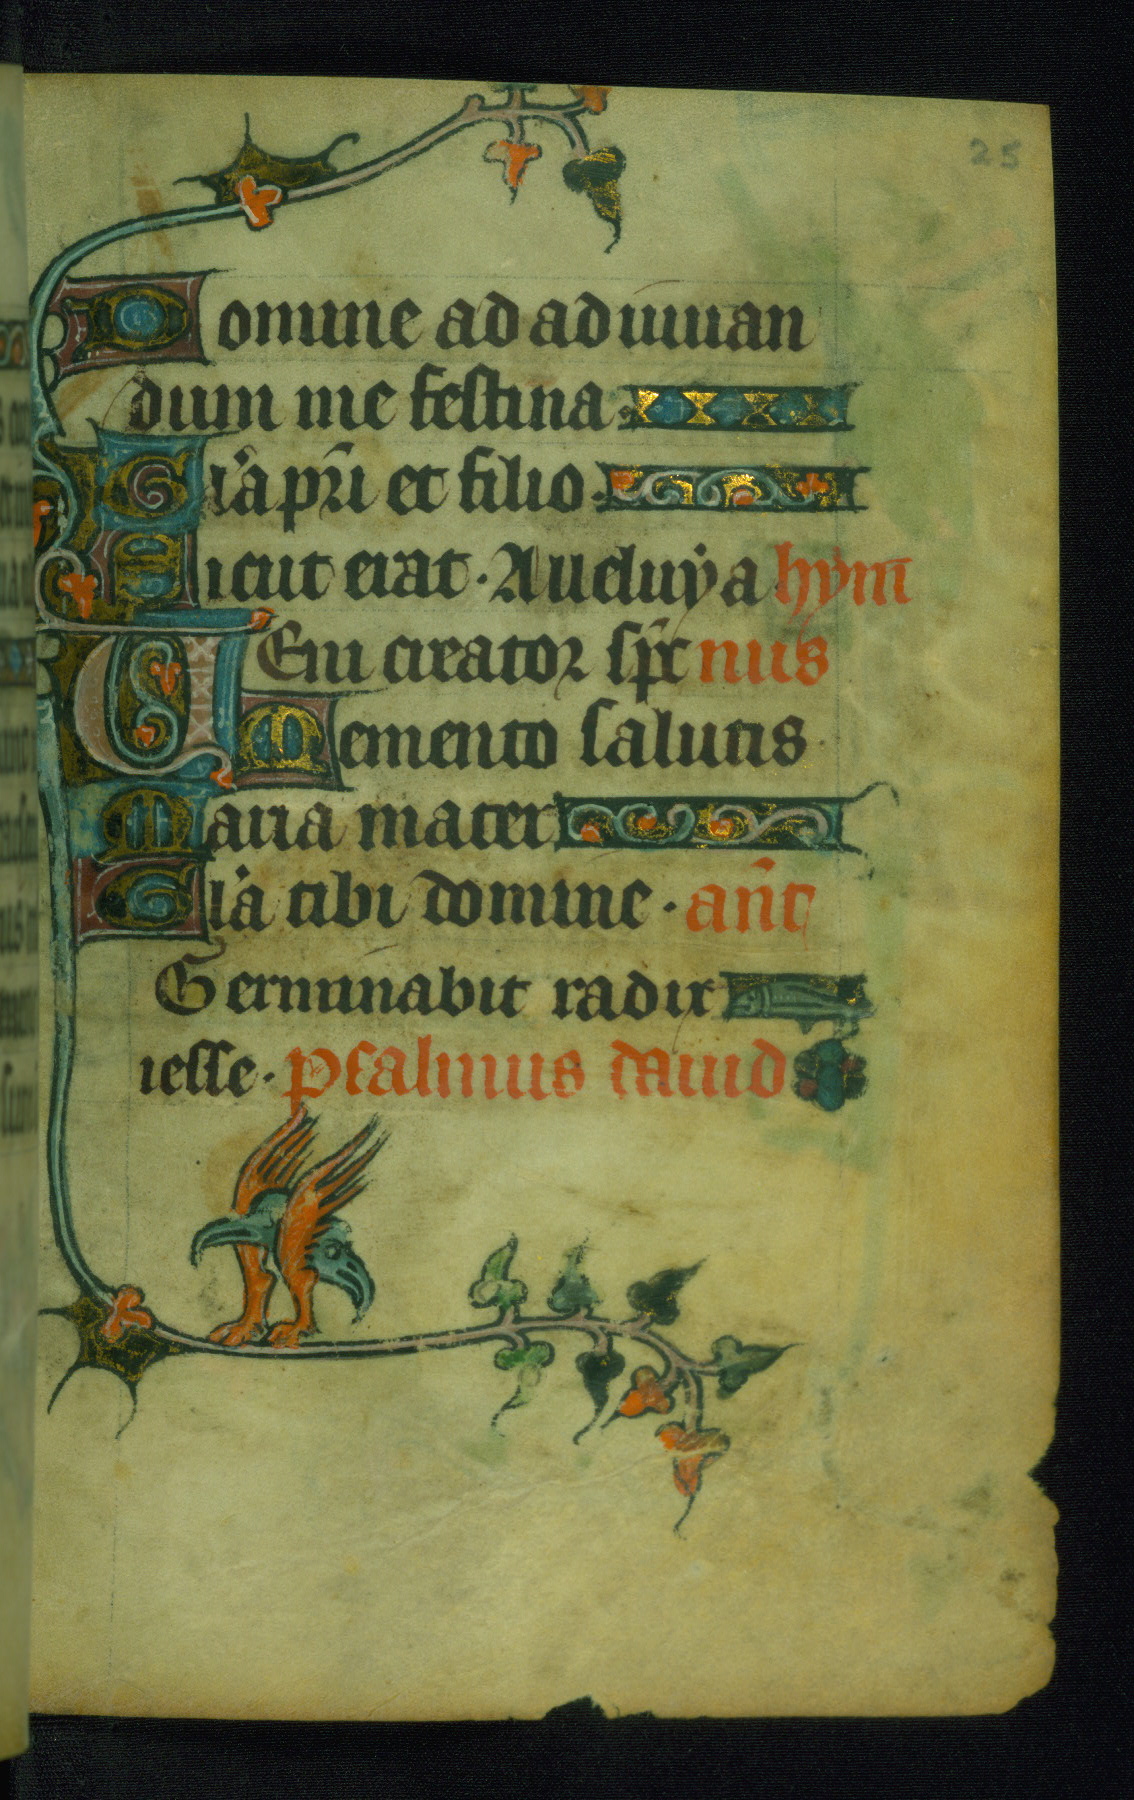 25
Domine ad adiuuan
dum me festina
Gl'a pr̄i et filio
Sicut erat. Aeuuya hym̄
Ueni creator sp̄c nus
Memento salutis
Maria mater
Gl'a tibi domine. an̄t
Germinabit radix
iesse. psalmus dauid